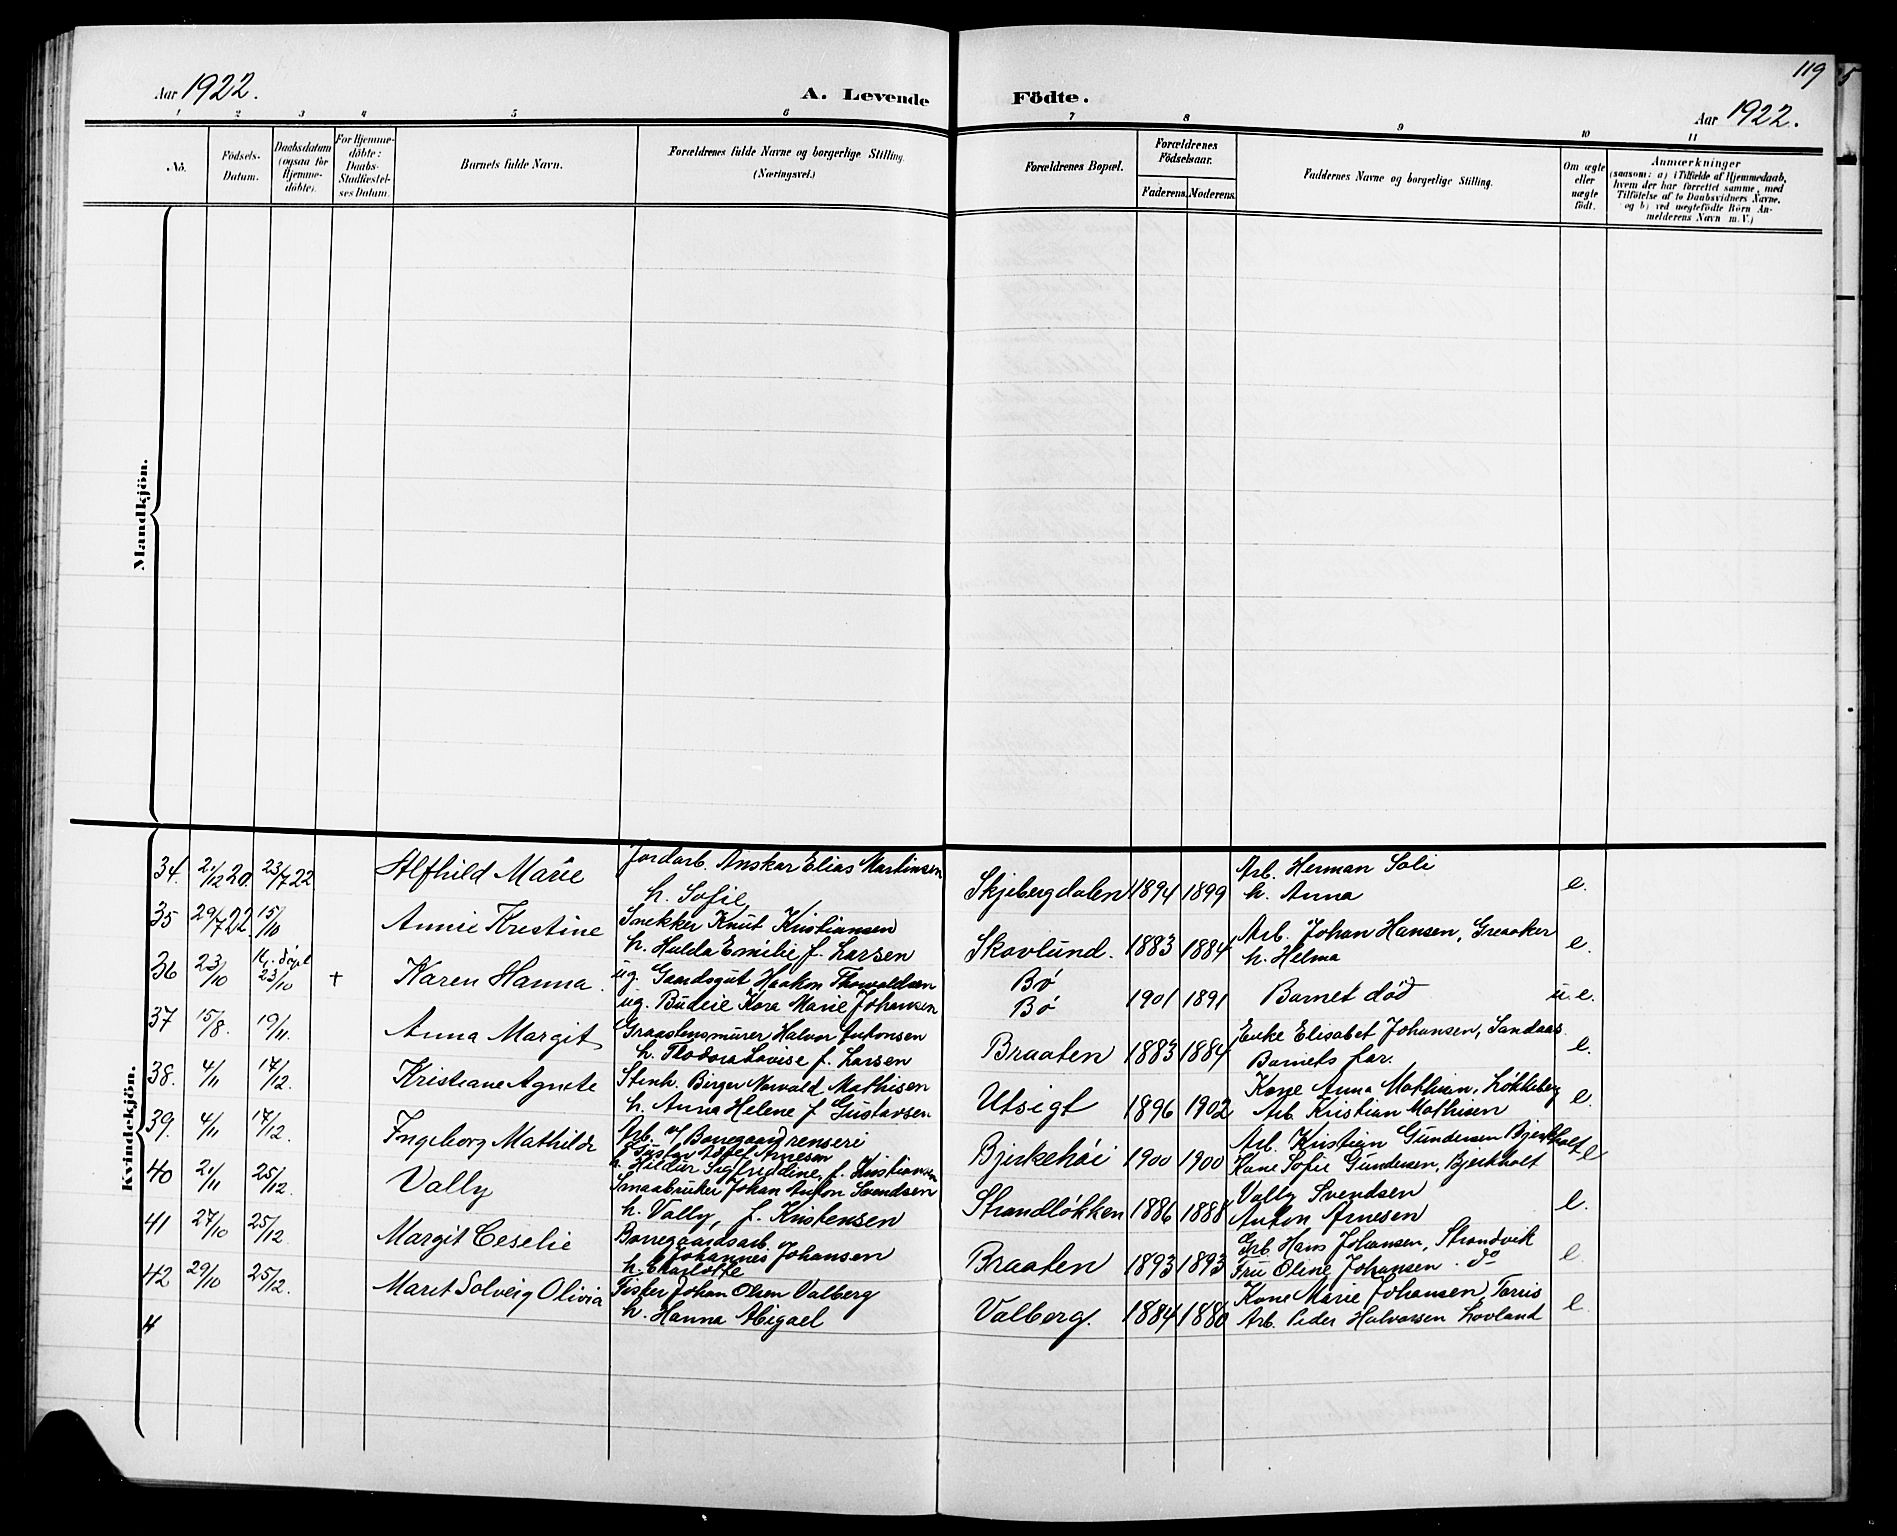 119
5
Aar 1922.
A. Levende Födte.
Aar 1922.
1 2 3 4 5 6 7 8 9 10 11
No.
Födsels-
Datum.
Daabsdatum
(ogsaa for
Hjemme-
döbte).
For Hjemme-
döbte:
Daabs-
Stadfæstel-
ses Datum.
Barnets fulde Navn.
Forældrenes fulde Navne og borgerlige Stilling.
(Næringsvei.)
Forældrenes Bopæl.
Forældrenes
Födselsaar.
Faderens. Moderens.
Faddernes Navne og borgerlige Stilling.
Om ægte
eller
uægte
födt.
Anmærkninger
(saasom: a) i Tilfælde af Hjemmedaab,
hvem der har forrettet samme, med
Tilföielse af to Daabsvidners Navne,
og b) ved uægtefödte Börn An-
melderens Navn m. V.)
Mandkjön.
Kvindekjön.
34. 21/12 20. 23/7 22 Alfhild Marie Jordarb. Anskar Elias Martinsen
h. Sofie
Skjebergdalen 1894 1899 Arb. Herman Soli
h. Anna
e.
35 29/7 22. 15/10 Annie Kristine Snekker Knut Kristiansen
h. Hulda Emilie f. Larsen
Skovlund. 1883 1884 Arb. Johan Hansen, Greaaker
h. Helma
e.
36 23/10 23/10 + Karen Hanna. ug. Gaardsgut Haakon Thorvaldsen
ug. Budeie Kora Marie Johansen
Bø
Bø
1901 1891 Barnet død u. e.
37 15/8. 19/11. Anna Margit Graastensmurer Halvor Antonsen
h. Thodora Lovise f. Larsen
Braaten 1883 1884 Enke Elisabet Johansen, Sandaas.
Barnets far.
e.
38. 4/11 17/12. Kristiane Agnete Stenh. Birger Norvald Mathisen
h. Anna Helene f Gustavsen
Utsigt 1896 1902 Kone Anna Mathisen, Løkkeberg
Arb. Kristian Mathisen
e.
39. 4/11 17/12. Ingeborg Mathilde Arb. v/ Bonegaardrenseri
Gustav Adolf Arnesen
h. Hildur Sigfriddine, f. Kristiansen
Bjerkehøi 1900 1900 Arb. Kristian Gundersen Bjerkholt
Kone Sofie Gundersen, Bjerkholt
e
40 21/11 25/12. Vally Smaabruker Johan Anton Svendsen
h. Vally, f. Kristensen
Strandløkken 1886 1888 Vally Svendsen
Anton Arnesen
e.
41 27/10 25/12. Margit Ceselie Bonegaardsarb.
Johannes Johansen
h. Charlotte
Braaten 1893 1893 Grb. Hans Johansen, Strandvik
Fru Oline Johansen. do
e.
42 29/10 25/12. Marit Solveig Olivia Fisker Johan Olsen Valberg
h. Hanna Abigael
Valberg. 1884 1880 Kone Marie Johansen, Torris
Arb. Peder Halvorsen Lovland
e.
4